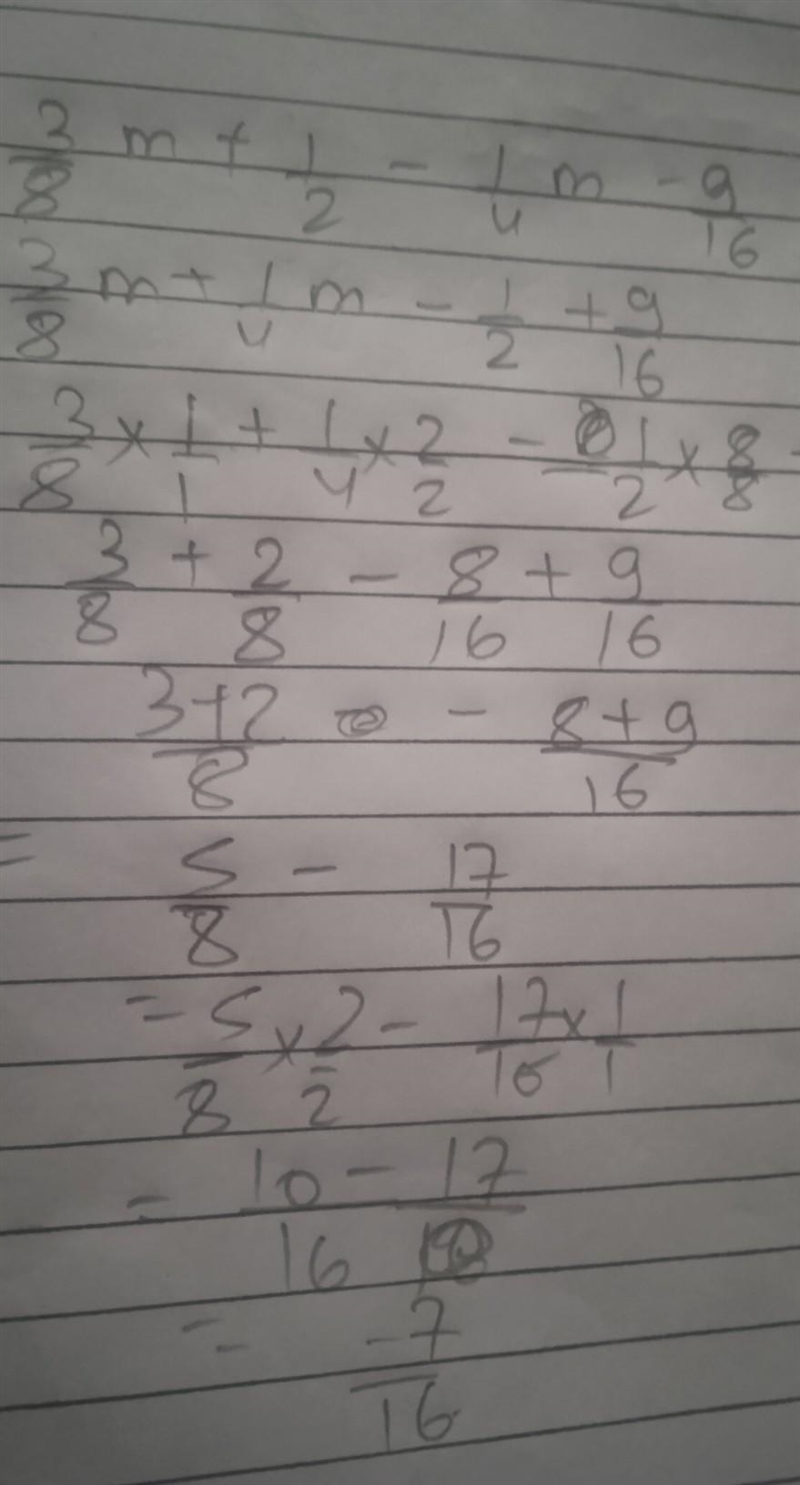 3/8 m + 1/2 - 1/4 m - 9/16
3/8 m + 1/4 m - 1/2 + 9/16
3/8 × 1/1 + 1/4 × 2/2 - 1/2 × 8/8 -
3/8 + 2/8 - 8/16 + 9/16
3+2/8 - 8+9/16
= 5/8 - 17/16
= 5/8 × 2/2 - 17/16 × 1/1
= 10/16 - 17
= -7/16